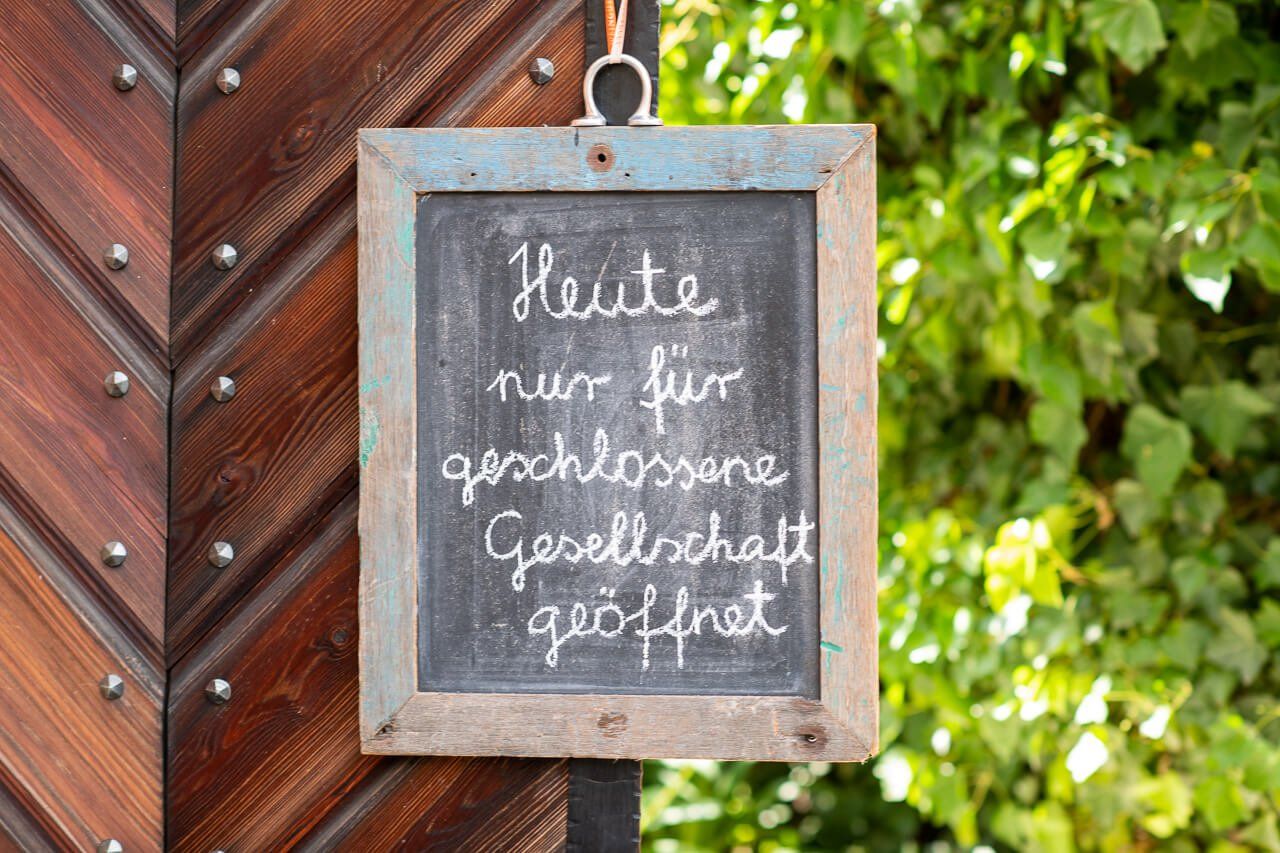 Heute
nur für
geschlossene
Gesellschaft
geöffnet